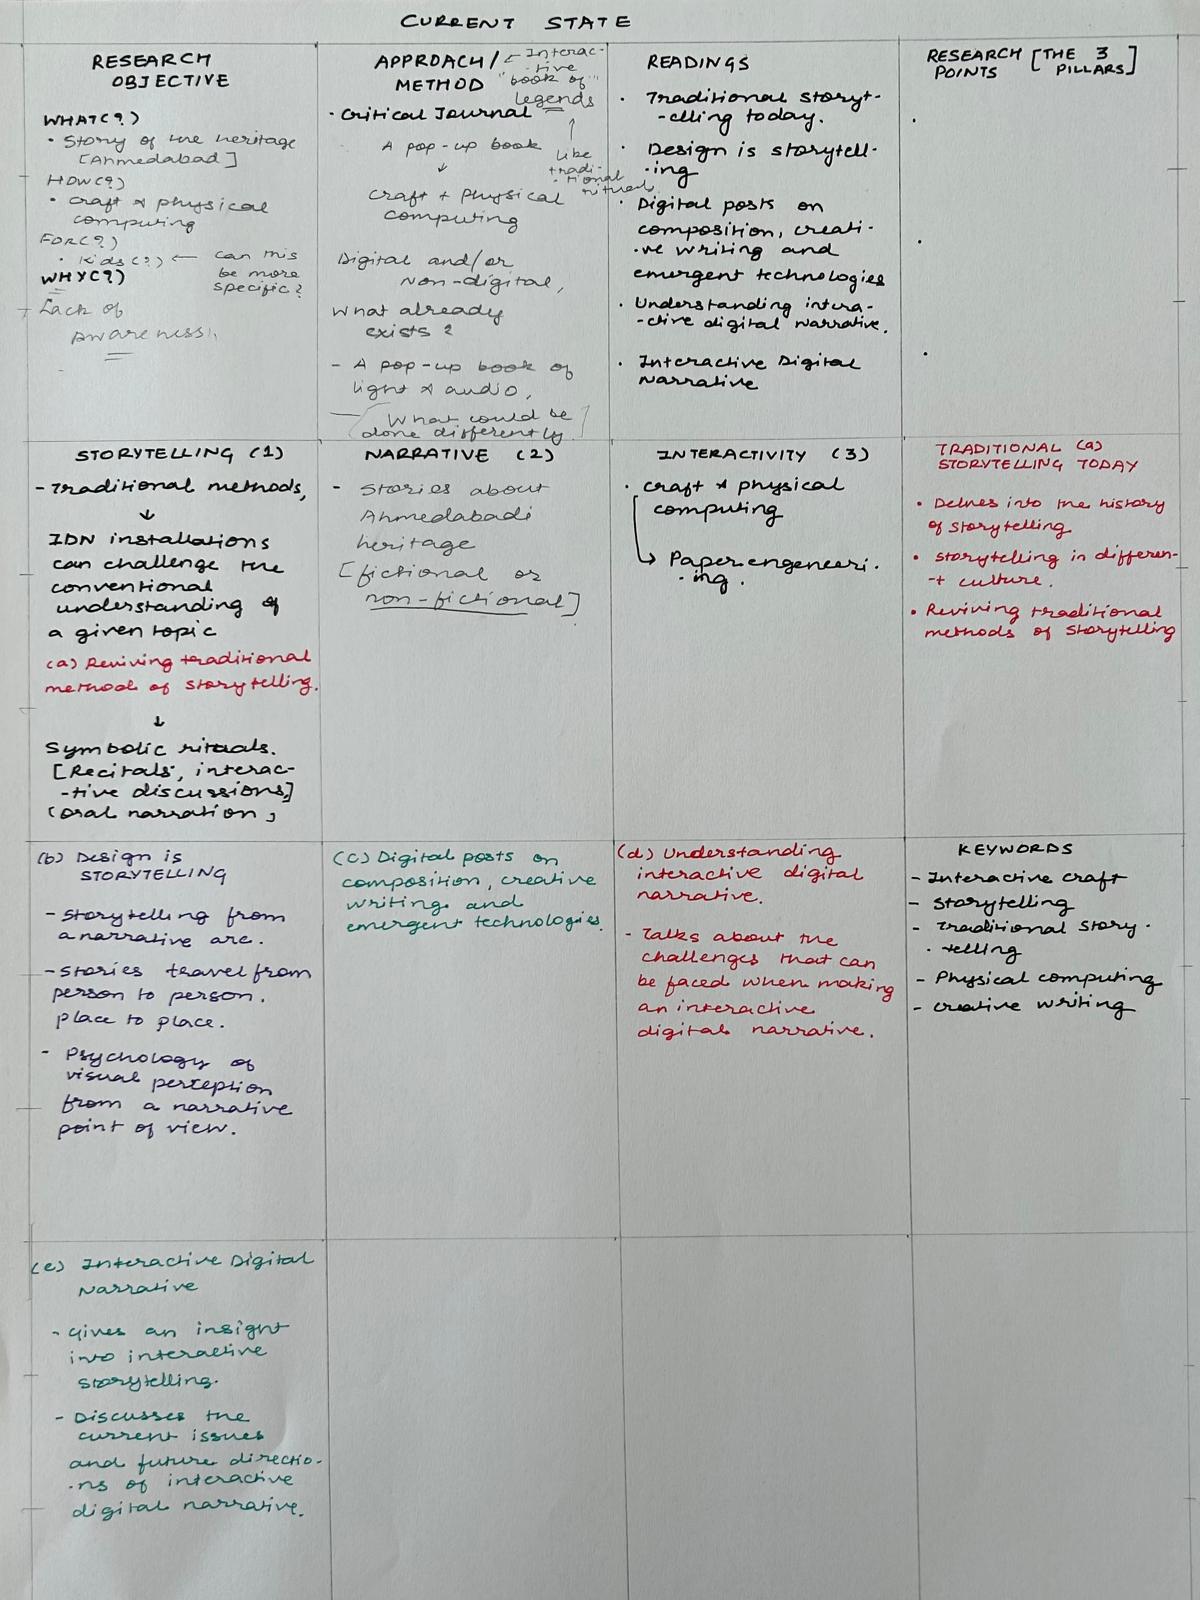 CURRENT STATE
RESEARCH
OBJECTIVE
WHAT(?)
• Story of the heritage
[Ahmedabad]
HOW(?)
• craft & physical
computing
FOR(?)
• Kids(?) ← can this
be more
specific?
WHY(?)
Lack of
Awareness
APPROACH/
METHOD
← Interac-
tive
"book of"
legends
• Critical Journal
A pop-up book
↓
like
tradi-
tional
ritual
Craft + Physical
computing
Digital and/or
Non-digital,
What already
exists?
- A pop-up book of
light & audio,
What could be
done differently
READINGS
• Traditional storyt-
-elling today.
• Design is storytell-
-ing
• Digital posts on
composition, creati-
-ve writing and
emergent technologies
• Understanding intera-
-ctive digital narrative.
• Interactive Digital
Narrative
RESEARCH [THE 3
POINTS PILLARS]
STORYTELLING (1)
- Traditional methods,
↓
IDN installations
can challenge the
conventional
understanding of
a given topic
(a) Reviving traditional
methods of storytelling.
↓
Symbolic rituals.
[Recitals, interac-
-tive discussions,]
(oral narration,
NARRATIVE (2)
- Stories about
Ahmedabadi
heritage
[fictional or
non-fictional]
INTERACTIVITY (3)
• craft & physical
computing
↳ Paper engeneeri-
-ing.
TRADITIONAL (a)
STORYTELLING TODAY
• Delves into the history
of storytelling
• storytelling in differen-
-t culture.
• Reviving traditional
methods of storytelling
(b) Design is
STORYTELLING
- Storytelling from
a narrative arc.
- Stories travel from
person to person.
place to place.
- Psychology of
visual perception
from a narrative
point of view.
(c) Digital posts on
composition, creative
writing and
emergent technologies.
(d) Understanding
interactive digital
narrative.
- Talks about the
challenges that can
be faced when making
an interactive
digital narrative.
KEYWORDS
- Interactive craft
- storytelling
- Traditional story-
-telling
- Physical computing
- creative writing
(e) Interactive Digital
Narrative
- Gives an insight
into interactive
storytelling.
- Discusses the
current issues
and future directio-
-ns of interactive
digital narrative.